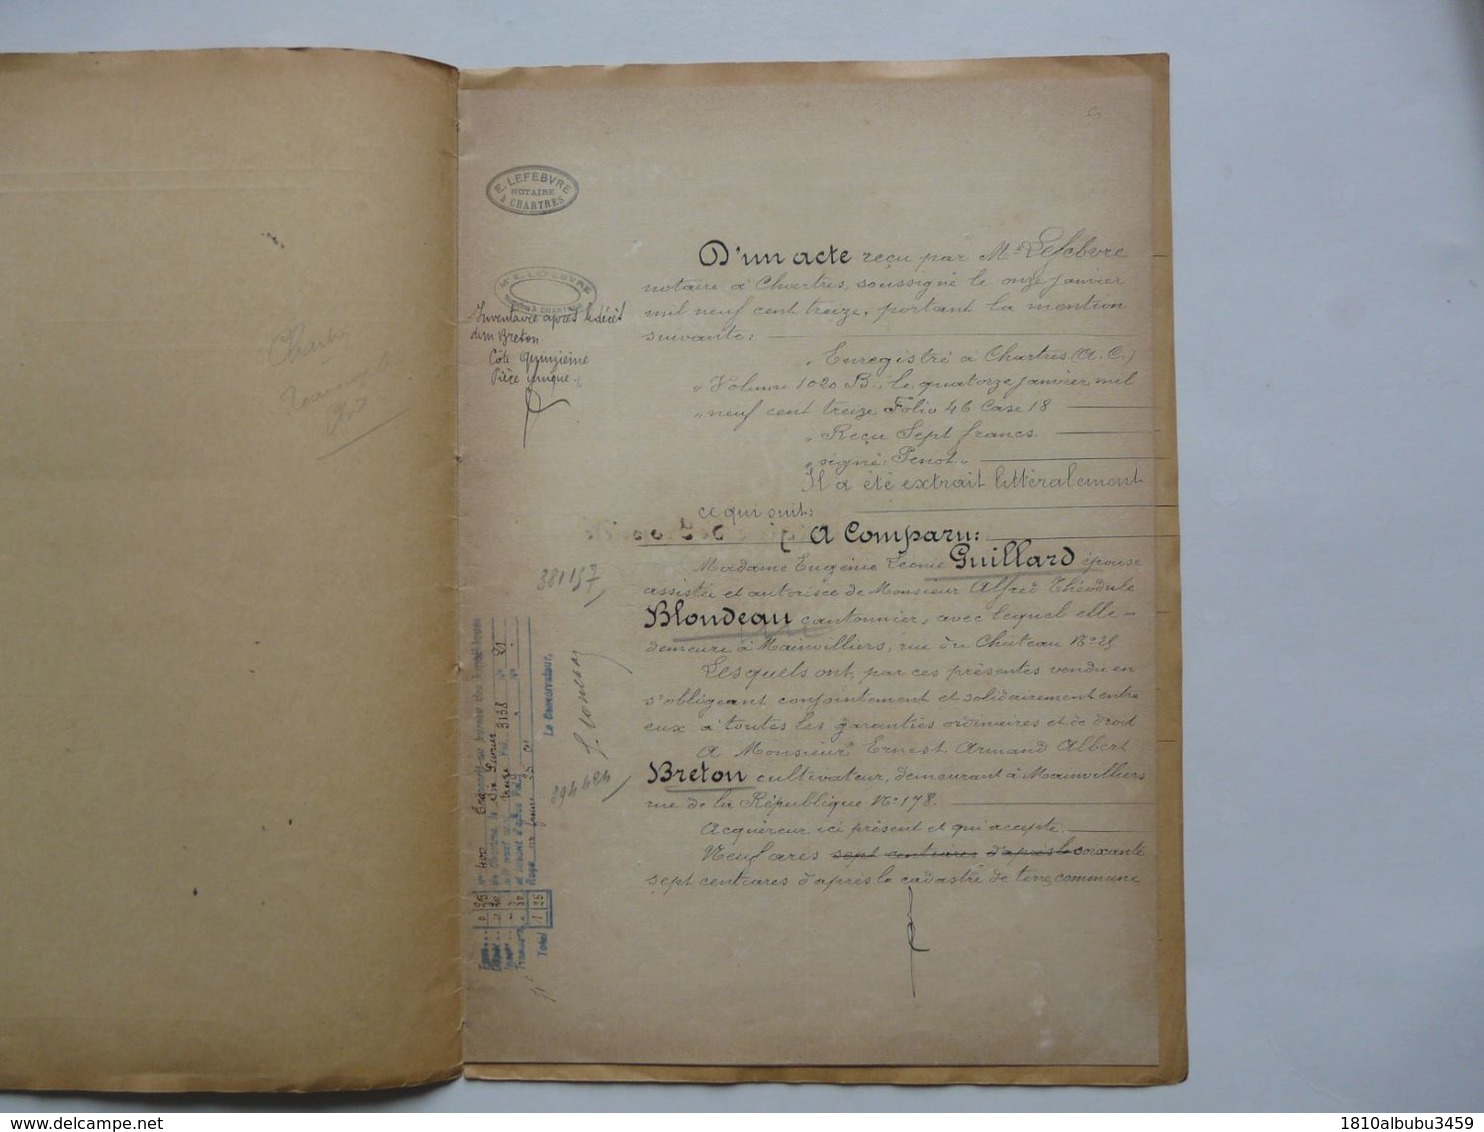 E. LEFEBVRE
NOTAIRE
À CHARTRES
Me E. LEFEBVRE
Inventaire après le décès
de m Breton
Côte Quinzième
Pièce Unique
D'un acte reçu par Me Lefebvre
notaire à Chartres, soussigné le onze janvier
mil neuf cent treize, portant la mention
suivante:
"Enregistré à Chartres (A.C.)
"Volume 1020 B., le quatorze janvier mil
"neuf cent treize Folio 46 Case 18
"Reçu Sept francs.
"signé: Penot."
Il a été extrait littéralement
ce qui suit:
A Comparu:
Madame Eugénie Leonie Guillard épouse
assistée et autorisée de Monsieur Alfred Théodule
Blondeau cantonnier, avec lequel elle
demeure à Mainvilliers, rue du Château No 25
Lesquels ont, par ces présentes vendu en
s'obligeant conjointement et solidairement entre
eux à toutes les garanties ordinaires et de droit
A Monsieur Ernest Armand Albert
Breton cultivateur, demeurant à Mainvilliers
rue de la République No 178.
Acquéreur ici présent et qui accepte.
Neuf ares sept centiares d'après le soixante
sept centiares d'après le cadastre de terre, commune
381157
394424
Le Conservateur,
No 400
3138
No 21
Total 1 25
1810albubu3459
www.delcampe.net